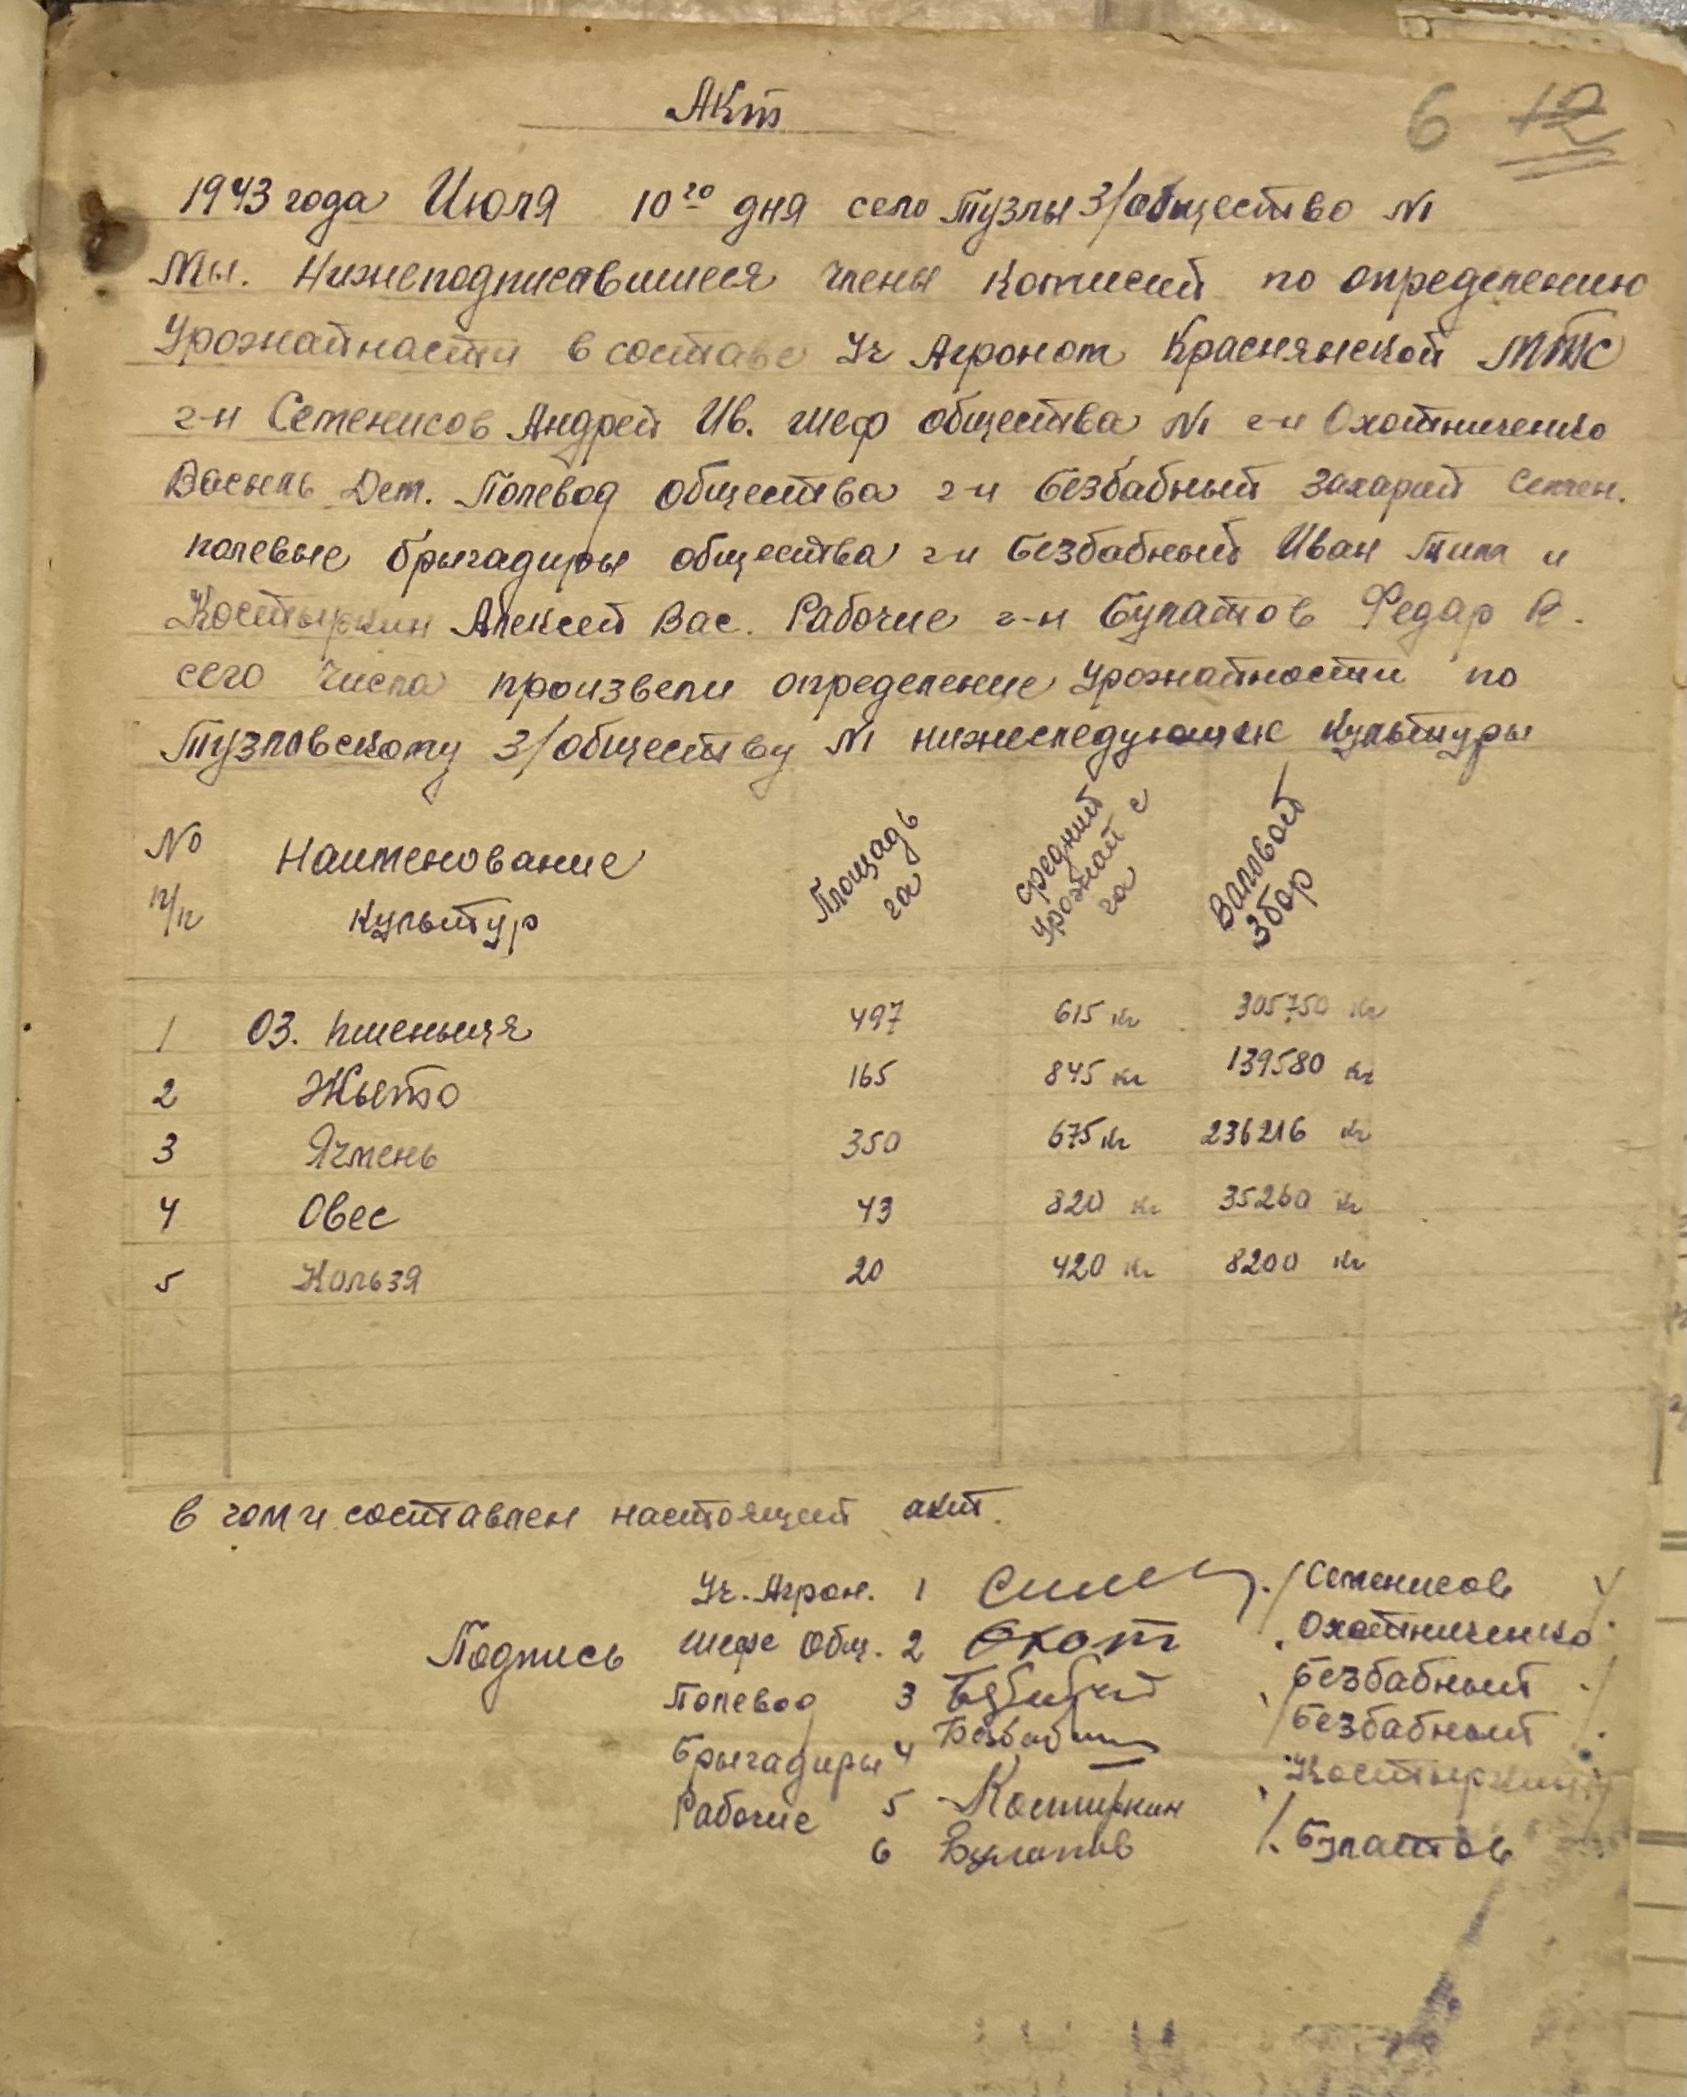 Акт
6 12
1943 года Июля 10го дня село Тузлы З/общество №1
Мы. Нижеподписавшиеся члены Комисий по определению
Урожайности в составе Уч Агроном Краснянской МТС
г-н Семенисов Андрей Ив. шеф общества №1 г-н Охотниченко
Василь Дем. Полевод общества г-н Безбабный Захарий Семен.
полевые брыгадиры общества г-н Безбабный Иван Тим и
Костыркин Алексей Вас. Рабочие г-н Булатов Федар
сего числа произвели определение Урожайности по
Тузловскому З/обществу №1 нижеследующие культуры
№ п/п Наименование культур Площадь га Средний Урожай с га Валовой Збор
1 Оз. пшеныця 497 615 кг 305750 кг
2 Жыто 165 845 кг 139580 кг
3 Ячмень 350 675 кг 236216 кг
4 Овес 43 820 кг 35260 кг
5 Кользя 20 420 кг 8200 кг
в чом и составлен настоящий акт.
Уч. Агрон. 1 /Семенисов
Подпись Шефе Общ. 2 Охот Охотниченко
Полевод 3 /Безбабный/
Брыгадиры 4 /Безбабный/
Рабочие 5 Костиркин Костыркин
6 Булатов /Булатов